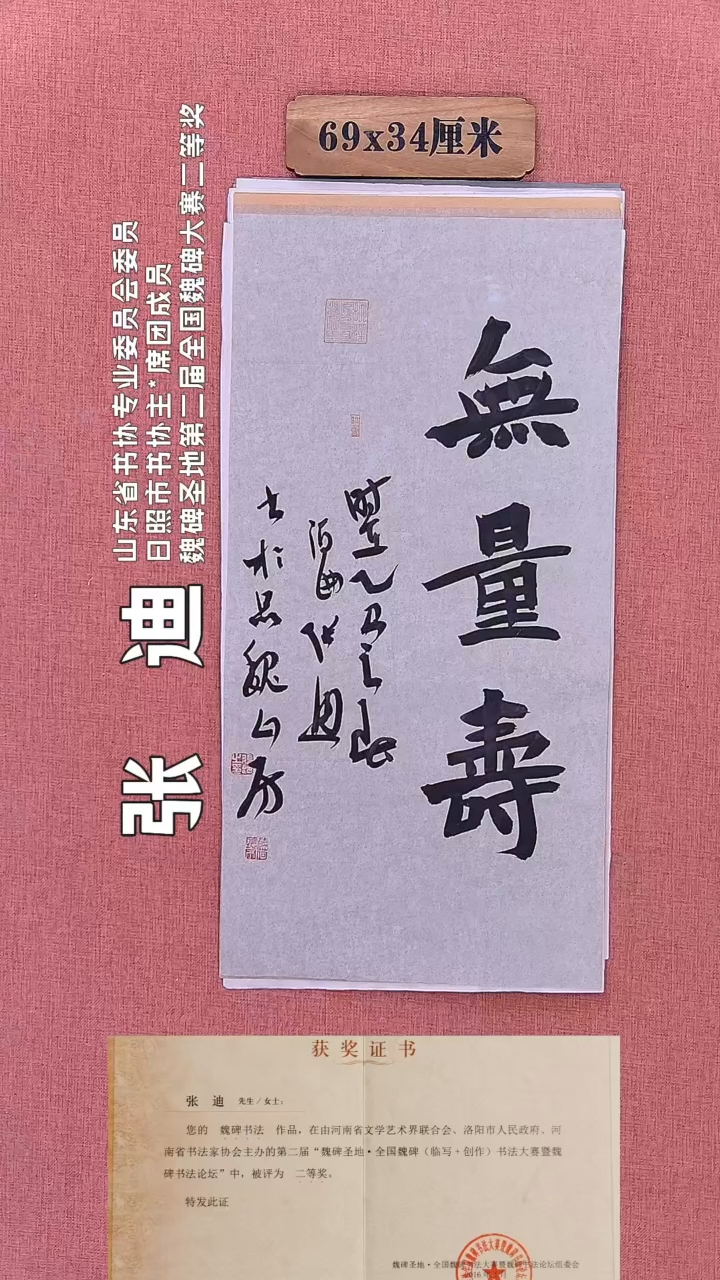 69x34厘米
無量壽
时在乙巳之春
张迪
山东省书协专业委员会委员
日照市书协主*席团成员
魏碑圣地第二届全国魏碑大赛二等奖
获奖证书
张 迪 先生/女士:
您的 魏碑书法 作品，在由河南省文学艺术界联合会、洛阳市人民政府、河
南省书法家协会主办的第二届“魏碑圣地·全国魏碑（临写+创作）书法大赛暨魏
碑书法论坛”中，被评为 二等奖。
特发此证
魏碑圣地·全国魏碑书法大赛暨魏碑书法论坛组委会